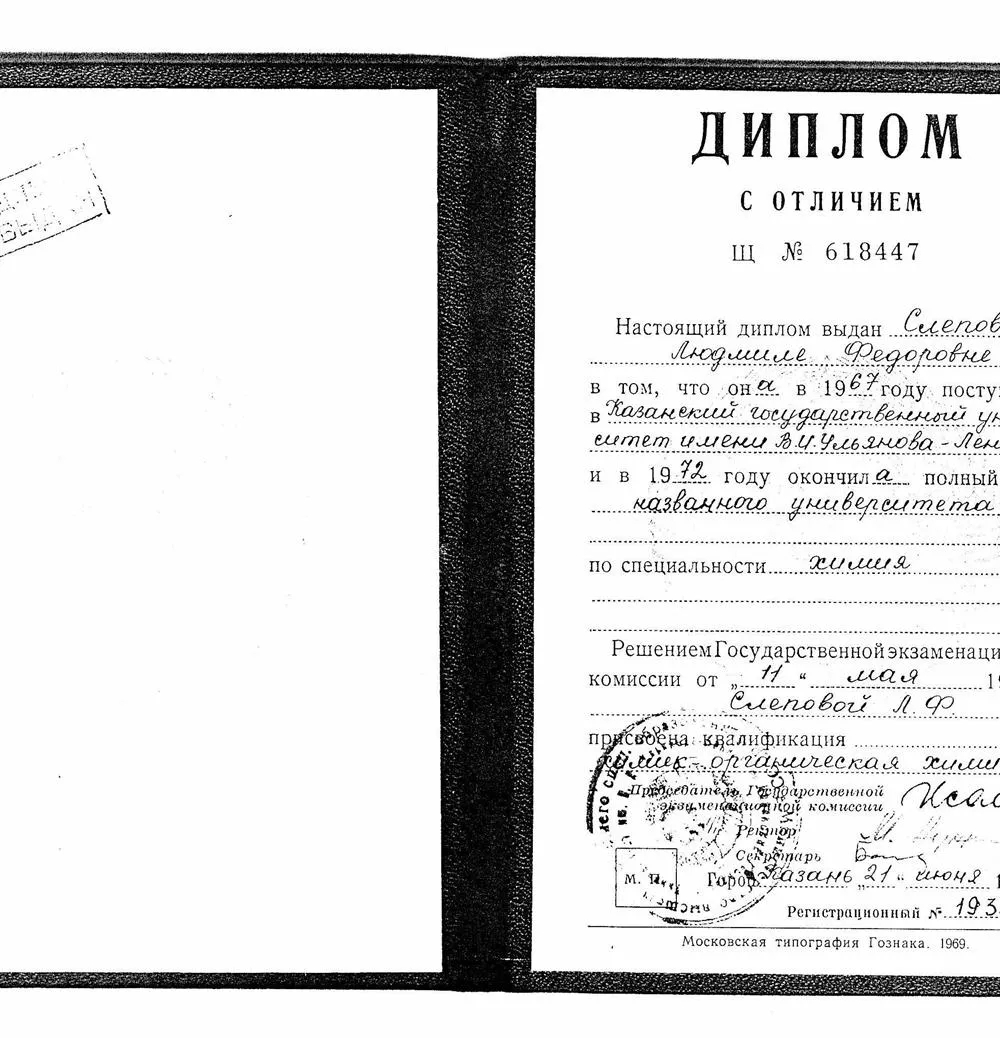 ДИПЛОМ
С ОТЛИЧИЕМ
Щ № 618447
Настоящий диплом выдан Слепов
Людмиле Федоровне
в том, что она в 1967 году посту
в Казанский государственный ун
ситет имени В.И.Ульянова-Лен
и в 1972 году окончила полный
названного университета
по специальности химия
Решением Государственной экзаменаци
комиссии от „11“ мая 19
Слеповой Л.Ф.
присвоена квалификация
химик-органическая хими
Председатель Государственной
экзаменационной комиссии
Ректор
Секретарь
М. П. Город Казань „21“ июня 1
Регистрационный № 193
Московская типография Гознака. 1969.